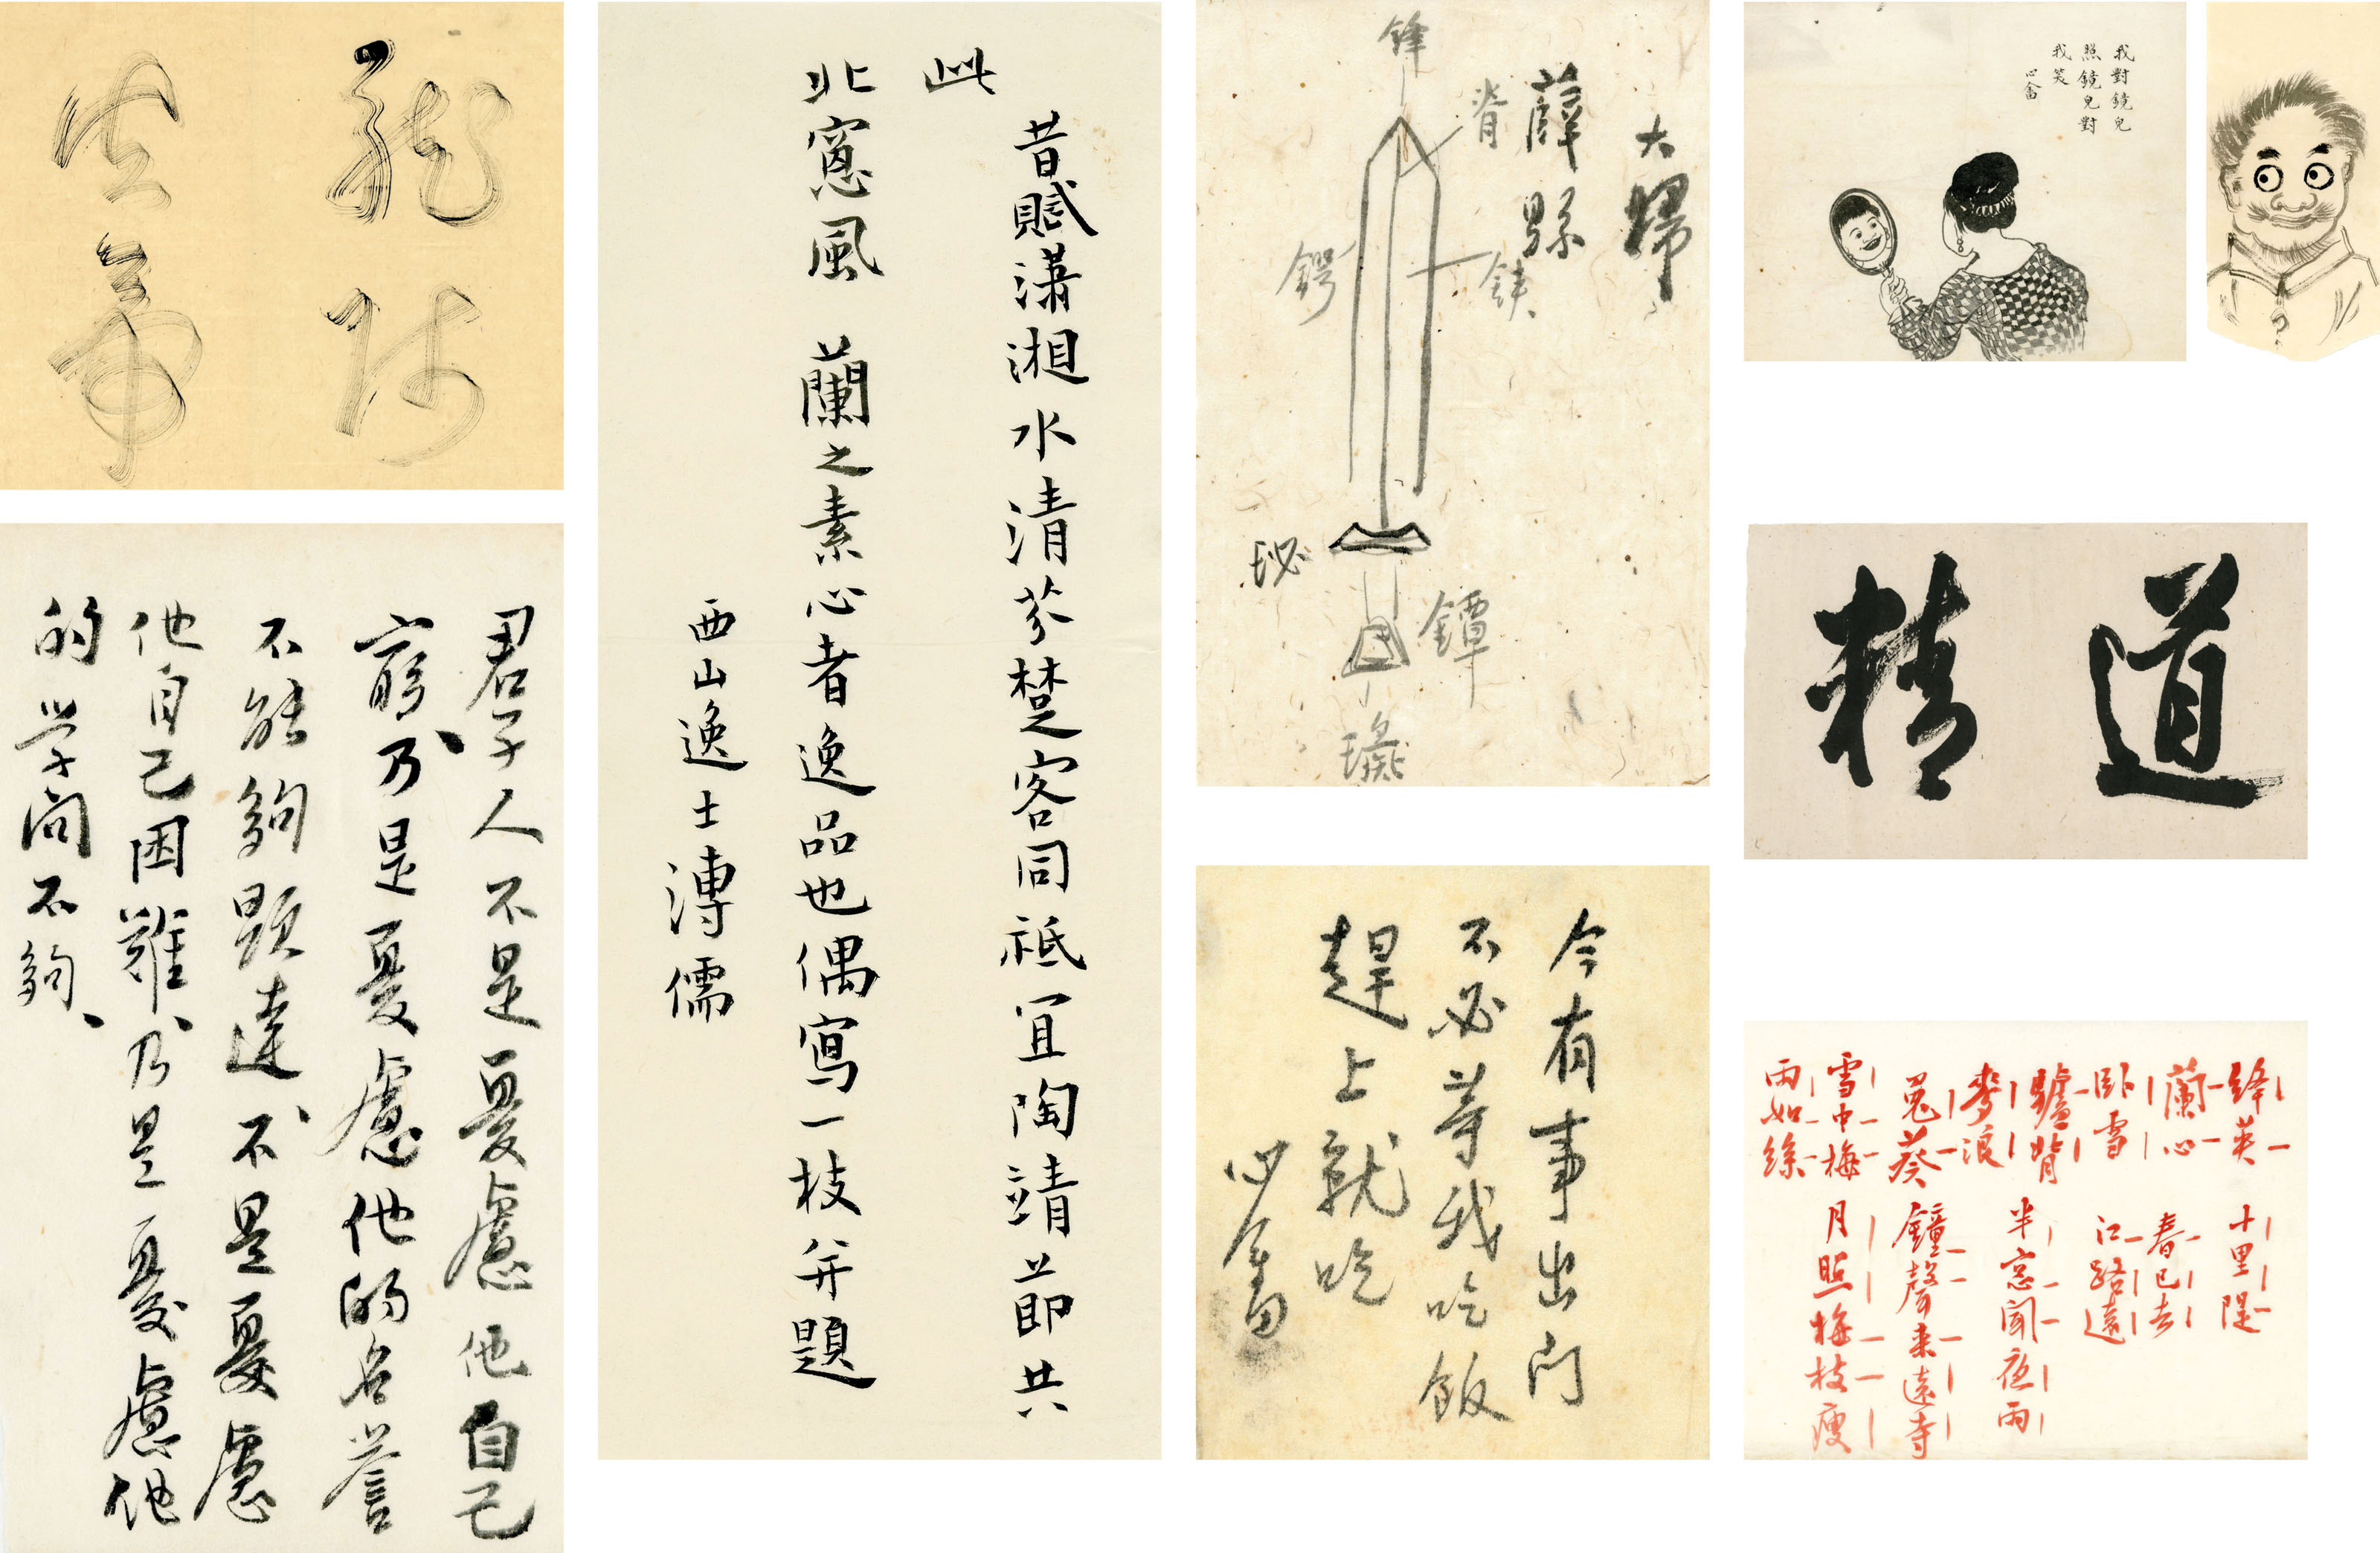 龍
君子人不是憂慮他自己
窮、乃是憂慮他的名譽
不能夠顯達、不是憂慮
他自己困難、乃是憂慮他
的学问不夠、
昔賦瀟湘水清芬楚客同祗宜陶靖節共
此
北窓風 蘭之素心者逸品也偶寫一枝并題
西山逸士溥儒
大
薛縣
鋒
脊
鍔
鋏
珌
鐔
今有事出门
不必等我吃飯
趕上就吃
心畬
我對鏡兒
照鏡兒對
我笑
心畬
道精
絳英
蘭心
臥雪
驢背
麥浪
兔葵
雪中梅
雨如絲
十里隄
春已去
江路遠
半窓聞夜雨
鐘聲來遠寺
月照梅枝瘦